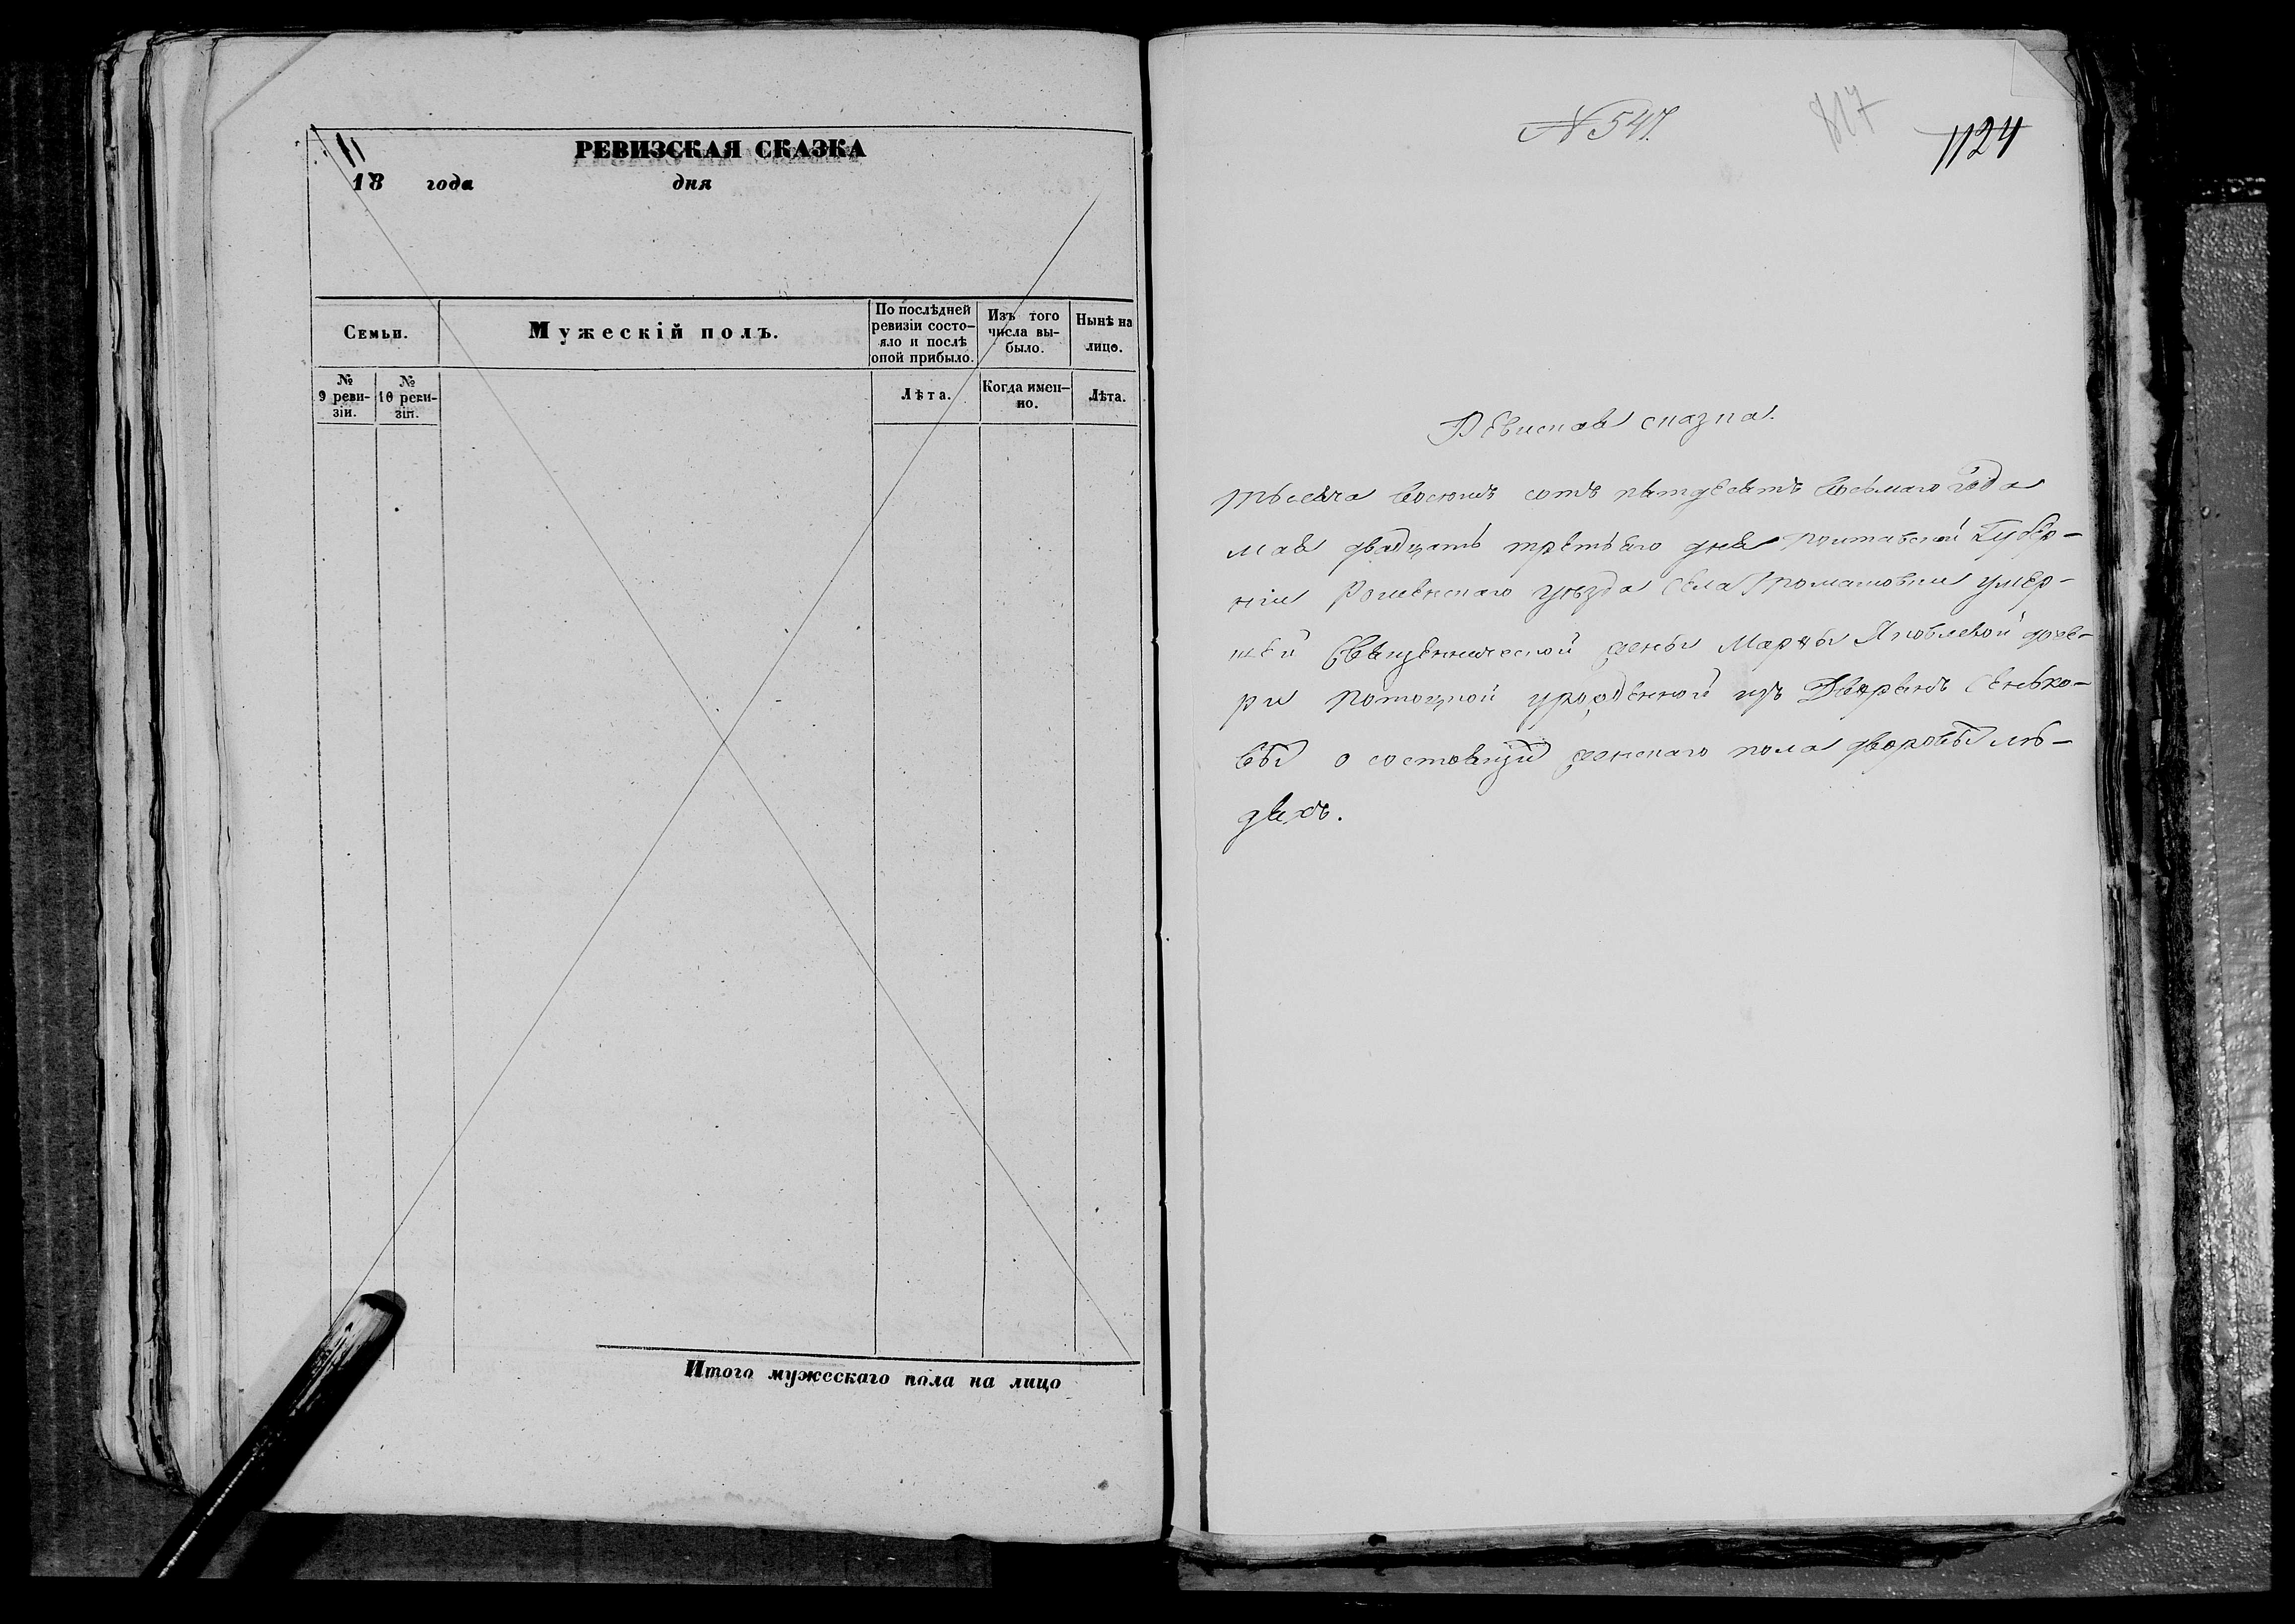 РЕВИЗСКАЯ СКАЗКА
18 года дня
Семьи.
Мужескій полъ.
По послѣдней ревизіи состо-
яло и послѣ оной прибыло.
Изъ того числа вы-
было.
Нынѣ на лицо.
№ 9 реви-
зіи.
№ 10 реви-
зіи.
Лѣта.
Когда имен-
но.
Лѣта.
Итого мужескаго пола на лицо
№ 547.
817
1124
Ревиская сказка.
тысяча восемъ сотъ пятдесятъ восьмаго года
мая двадцать третьяго дня Полтавской Губер-
ніи Роменскаго уѣзда села Громашовки умер-
шей Священнической жены Марфы Яковлевой доче-
ри Потоцкой урожденной изъ Дворянъ Сенько-
вых о состоящих женскаго пола дворовых лю-
дяхъ.